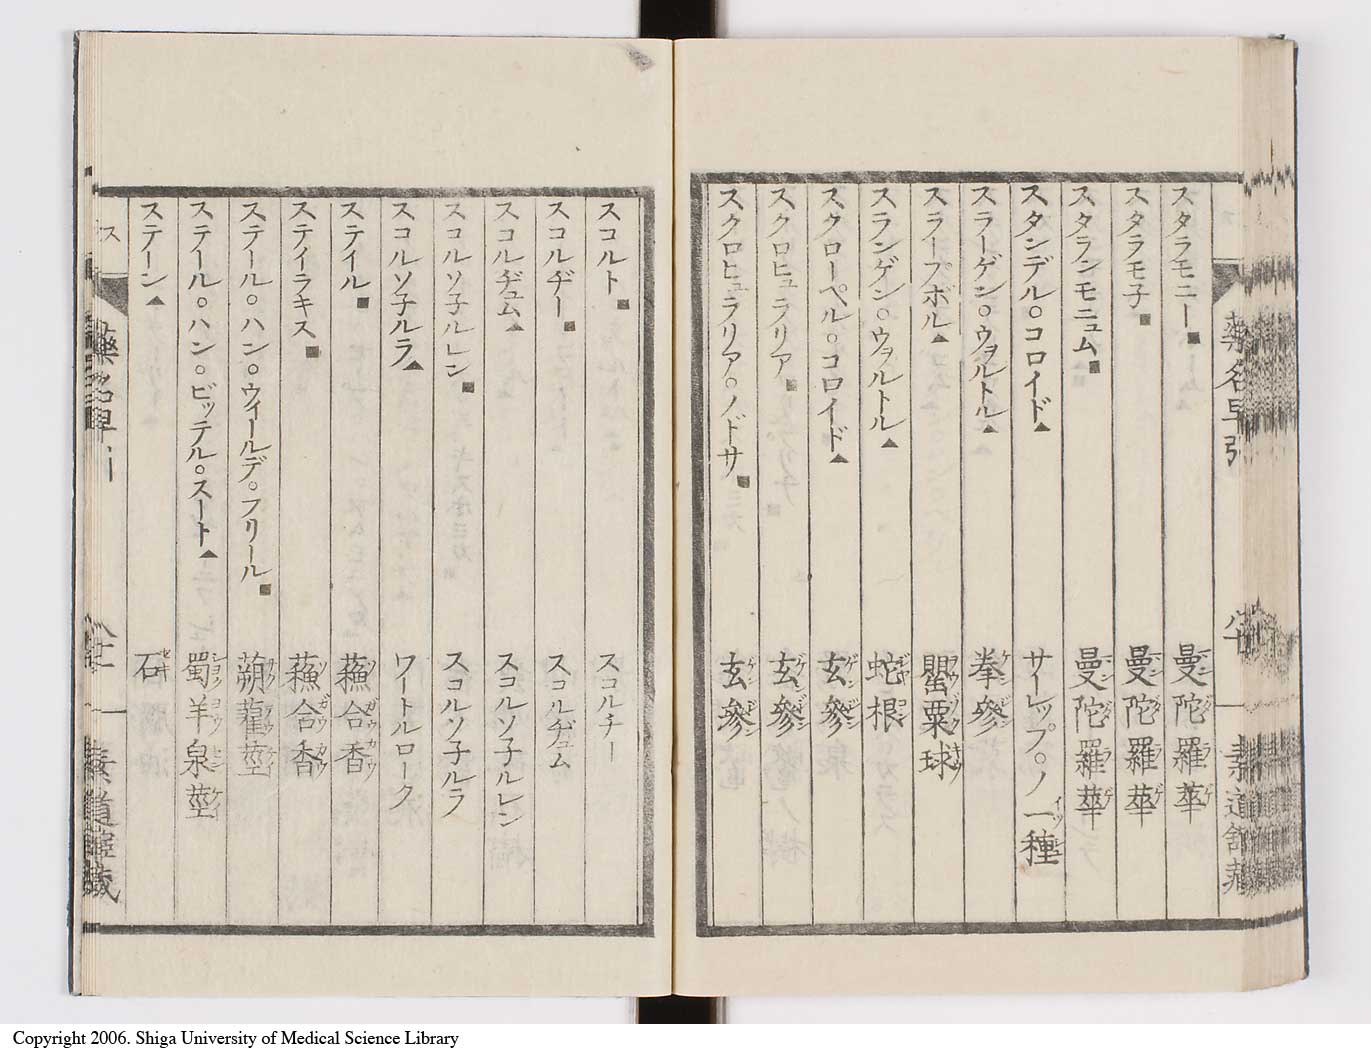 スタラモニー■ 曼陀羅華
スタラモ子■ 曼陀羅華
スタランモニュム■ 曼陀羅華
スタンデル○コロイド▲ サーレップ○ノ一種
スラーゲン○ウヲルトル▲ 拳參
スラープボル▲ 罌粟球
スランゲン○ウヲルトル▲ 蛇根
スクローペル○コロイド▲ 玄參
スクロヒュラリア■ 玄參
スクロヒュラリア○ノドサ■ 玄參
スコルト■ スコルチー
スコルヂー■ スコルヂュム
スコルヂュム▲ スコルソ子ルレン
スコルソ子ルレン■ スコルソ子ルラ
スコルソ子ルラ▲ ワートルローク
ステイル■ 蘓合香
ステイラキス■ 蘓合香
ステール○ハン○ウィールデ○フリール■ 蒴藋莖
ステール○ハン○ビッテル○スート▲ 蜀羊泉莖
ステーン▲ 石
ス
藥名早引
Copyright 2006. Shiga University of Medical Science Library